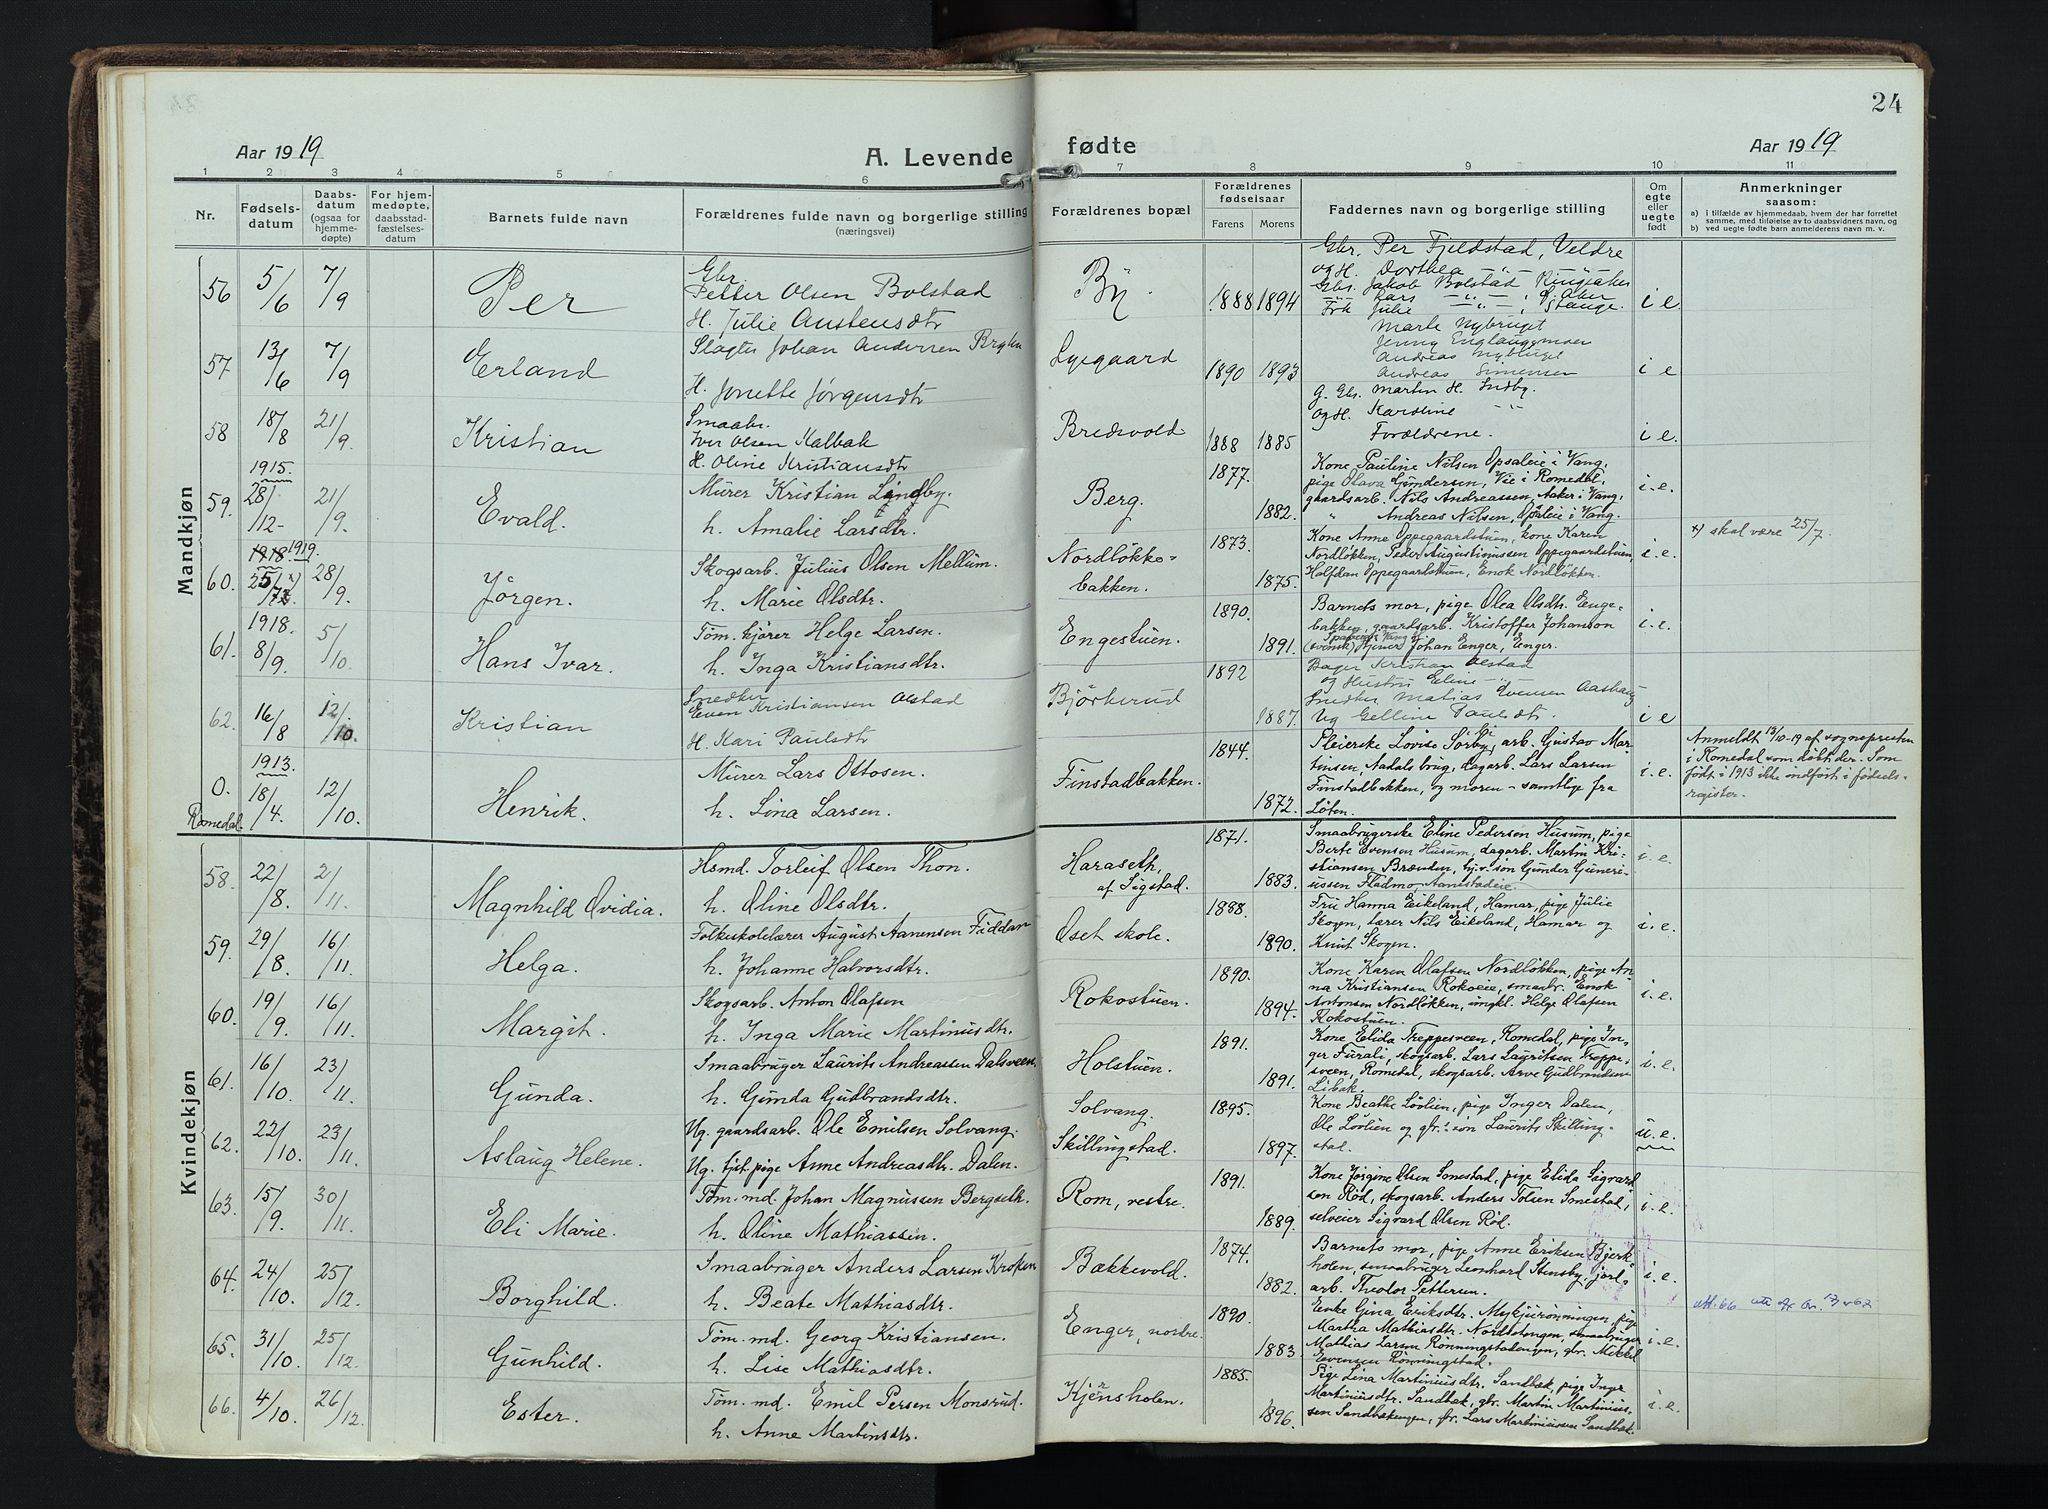 24
Aar 1919
A. Levende fødte
Aar 1919
1 2 3 4 5 6 7 8 9 10 11
Nr.
Fødsels-
datum
Daabs-
datum
(ogsaa for
hjemme-
døpte)
For hjem-
medøpte,
daabsstad-
fæstelses-
datum
Barnets fulde navn
Forældrenes fulde navn og borgerlige stilling
(næringsvei)
Forældrenes bopæl
Forældrenes
fødselsaar
Farens Morens
Faddernes navn og borgerlige stilling
Om
egte
eller
uegte
født
Anmerkninger
saasom:
a) i tilfælde av hjemmedaab, hvem der har forrettet
samme, med tilføielse av to daabsvidners navn, og
b) ved uegte fødte barn anmelderens navn m. v.
Mandkjøn
56 5/6 7/9 Per
Gbr.
Petter Olsen Bolstad
H. Julie Austensdtr
By 1888 1894
Gbr. Per Fjeldstad, Veldre
og H. Dorthea
Gbr. Jakob Bolstad Ringsaker
Lars
Frk Julie Stange.
i e
57 13/6 7/9 Erland
Slagter Johan Andersen
H. Jonette Jørgensdtr
Lyegaard 1890 1893
Marte Nybruget
Jenny Englaugsmoen
Andreas Nybruget
Andreas Simensen
i e
58 18/8 21/9 Kristian
Smaabr.
Iver Olsen Kalbak
H. Oline Kristiansdtr
Bredsvold 1888 1885
G. Gbr. Martin H. Indby.
og H. Karoline
Forældrene.
i e.
59. 1915. 28/12- 21/9. Evald.
Murer Kristian Lindby.
h. Amalie Larsdtr.
Berg. 1877. 1882.
Kone Pauline Nilsen Opsaleie i Vang,
pige Olava Gundersen, Vie i Romedal,
gaardsarb. Nils Andreassen, Aaker i Vang,
" Andreas Nilsen, Opsaleie i Vang.
i. e.
60. 1918. 1919. 28/9. Jörgen.
Skogsarb. Julius Olsen Mellum.
h. Marie Olsdtr.
Nordløkke-
bakken. 1873. 1875.
Kone Anne Oppegaardstuen, kone Karen
Nordløkken, Peder Augustinussen Oppegaardstuen,
Halfdan Oppegaardstuen, Enok Nordløkken.
i. e.
x) skal være 25/7.
61. 1918. 8/9. 5/10. Hans Ivar.
Töm.kjører Helge Larsen.
h. Inga Kristiansdtr.
Engestuen. 1890. 1891.
Barnets mor, pige Olea Olsdtr. Enge-
bakken, gaardsarb. Kristoffer Johanson
(svensk) Johan Enger, Enger.
i. e.
62. 16/8 12/10. Kristian
Snedker
Even Kristiansen Alstad
H. Kari Paulsdtr
Björkerud 1892 1887.
Bager Kristian Alstad
og Hustru Eline
Snedker Matias Evensen Aasbang
Ug Gelline Paulsdtr.
i e
0. Romedal 1913. 18/4. 12/10. Henrik.
Murer Lars Ottosen.
h. Lina Larsen.
Finstadbakken. 1844. 1872.
Pleierske Lovise Sörby, arb. Gustav Mar-
tinsen, Nadals brug, dagarb. Lars Larsen
Finstadbakken, og moren - samtlige fra
Løten.
i. e.
Anmeldt 13/10-19 af sognepresten
i Romedal som døbt der. Som
født i 1913 ikke indført i fødsels-
register.
Kvindekjøn
58. 22/8. 2/11. Magnhild Ovidia.
Hsmd. Torleif Olsen Thon.
h. Oline Olsdtr.
Haraseth,
af Sigstad. 1871. 1883.
Smaabrugerske Eline Pedersen Husum, pige
Berte Evensen Husum, dagarb. Martin Kri-
stiansen Brænden, hjv. søn Gunder Guneri-
ussen Fladmo, Aanestadeie.
i. e.
59. 29/8. 16/11. Helga.
Folkeskolelærer August Aanensen Fiddan
h. Johanne Halvorsdtr.
Oset skole. 1888. 1890.
Fru Hanna Eikeland, Hamar, pige Julie
Skogen, lærer Nils Eikeland, Hamar og
Knut Skogen.
i. e.
60. 19/9. 16/11. Margit.
Skogsarb. Anton Olafsen
h. Inga Marie Martinusdtr.
Rokostuen. 1890. 1894.
Kone Karen Olafsen Nordløkken, pige An-
na Kristiansen Rokoeie, smaabr. Enok
Antonsen Nordløkken, ungkl. Helge Olafsen
Rokostuen.
i. e.
61. 16/10. 23/11. Gunda.
Smaabruger Laurits Andreassen Dalsveen.
h. Gunda Gudbrandsdtr.
Holstuen. 1891. 1891.
Kone Elida Treppesveen, Romedal, pige In-
ger Furali, skogsarb. Lars Lauritsen Treppe-
sveen, Romedal, skogsarb. Arve Gudbrandsen
Libak.
i. e.
62. 22/10. 23/11. Aslaug Helene.
Ug. gaardsarb. Ole Emilsen Solvang.
Ug. tjst. pige Anne Andreasdtr. Dalen.
Solvang.
Skillingstad. 1895. 1897.
Kone Beathe Løvlien, pige Inger Dalen,
Ole Løvlien og gbr. søn Laurits Skilling-
stad.
u. e.
63. 15/9. 30/11. Eli Marie.
Töm. md. Johan Magnussen Bergseth.
h. Oline Mathiassen.
Rom, vestre. 1891. 1889.
Kone Jørgine Olsen Sonestad, pige Elida Sigvard-
sen Rød, skogsarb. Anders Tolsen Sonestad,
selveier Sigvard Olsen Rød.
i. e.
64. 24/10. 25/12. Borghild.
Smaabruger Anders Larsen Kroken
h. Beate Mathiasdtr.
Bækkevold. 1874. 1882.
Barnets mor, pige Anne Eriksen Bjerk-
holen, smaabruger Leonhard Stensby, jord-
arb. Theodor Pettersen.
i. e.
65. 31/10. 25/12. Gunhild.
Töm. md. Georg Kristiansen.
h. Lise Mathiasdtr.
Enger, nordre. 1890. 1883.
Enke Gina Eriksdtr. Mykjurønningen, pige
Martha Mathiasdtr. Nordtotengen, smaabruger
Mathias Larsen Rønningstadengen, gbr. Mikkel
Evensen Rønningstad.
i. e.
66. 4/10. 26/12. Ester.
Töm. md. Emil Persen Monsrud.
h. Anne Martinsdtr.
Kjernsholen. 1885. 1896.
Pige Lina Martiniusdtr. Sandbæk, pige Inga
Martiniusdtr. Sandbæk, gbr. Martin Martinius-
sen Sandbækengen, gbr. Lars Martiniussen Sandbæk.
i. e.